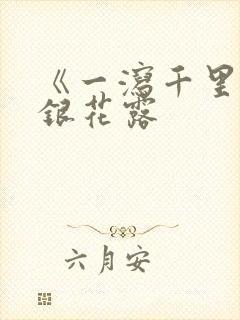 《一瀉千里
銀花露
六月安